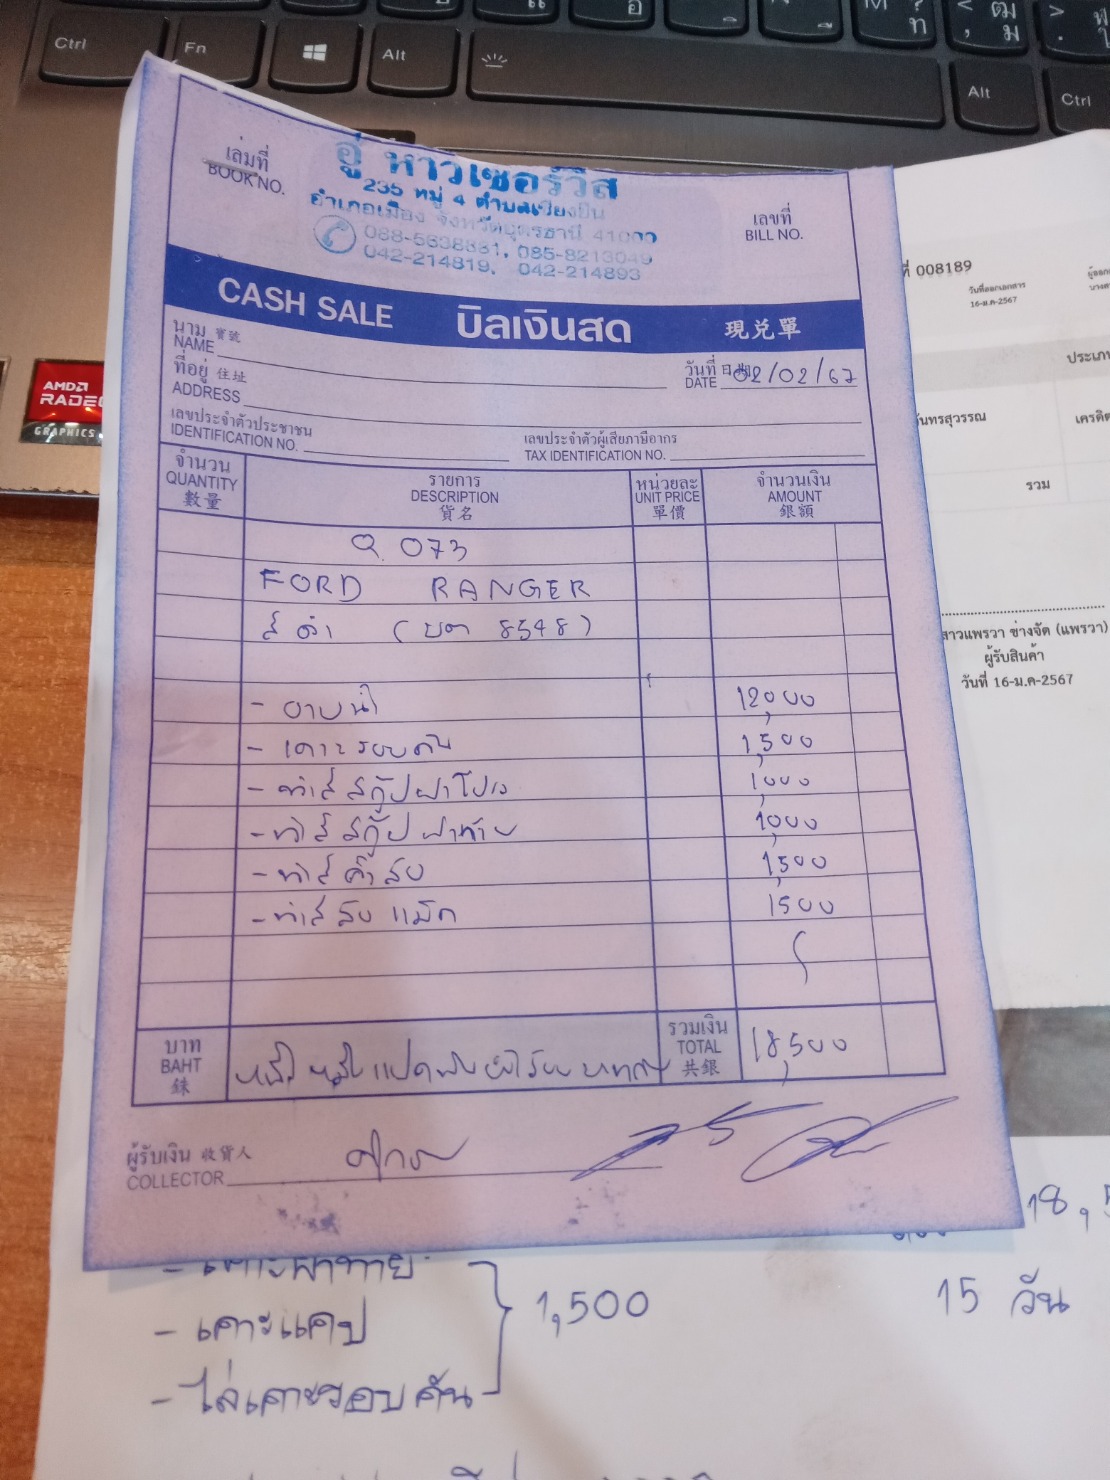 Ctrl
Fn
Alt
Alt
Ctrl
AMD
GRAPHICS
เล่มที่
BOOK NO.
อู่ หาวเซอร์วิส
235 หมู่ 4 ตำบลเชียงยืน
อำเภอเมือง จังหวัดอุดรธานี 41000
085-8213049
042-214819, 042-214893
เลขที่
BILL NO.
CASH SALE บิลเงินสด 現兑單
นาม 寳號
NAME
วันที่
DATE 02/02/67
ที่อยู่ 住址
ADDRESS
เลขประจำตัวประชาชน
IDENTIFICATION NO.
เลขประจำตัวผู้เสียภาษีอากร
TAX IDENTIFICATION NO.
จำนวน
QUANTITY
數量
รายการ
DESCRIPTION
貨名
หน่วยละ
UNIT PRICE
單價
จำนวนเงิน
AMOUNT
銀額
Q 073
FORD RANGER
สีดำ (บต 8548)
- อาบน้ำ 12,000
- เคาะรอบคัน 1,500
- ทำสีสกู๊ปฝาโปรง 1,000
- ทำสีสกู๊ปฝาท้าย 1,000
- ทำสีคิ้วล้อ 1,500
- ทำสีล้อแม็ก 1500
บาท
BAHT
銖
รวมเงิน
TOTAL
共銀
18,500
ผู้รับเงิน 收貨人
COLLECTOR
ที่ 008189
วันที่ออกเอกสาร
16-ม.ค-2567
ประเภท
ันทรสุวรรณ
เครดิต
รวม
สาวแพรวา ช่างจัด (แพรวา)
ผู้รับสินค้า
วันที่ 16-ม.ค-2567
18,5
- เคาะฝาท้าย
- เคาะแคป
1,500
15 วัน
- ไล่เคาะรอบคัน